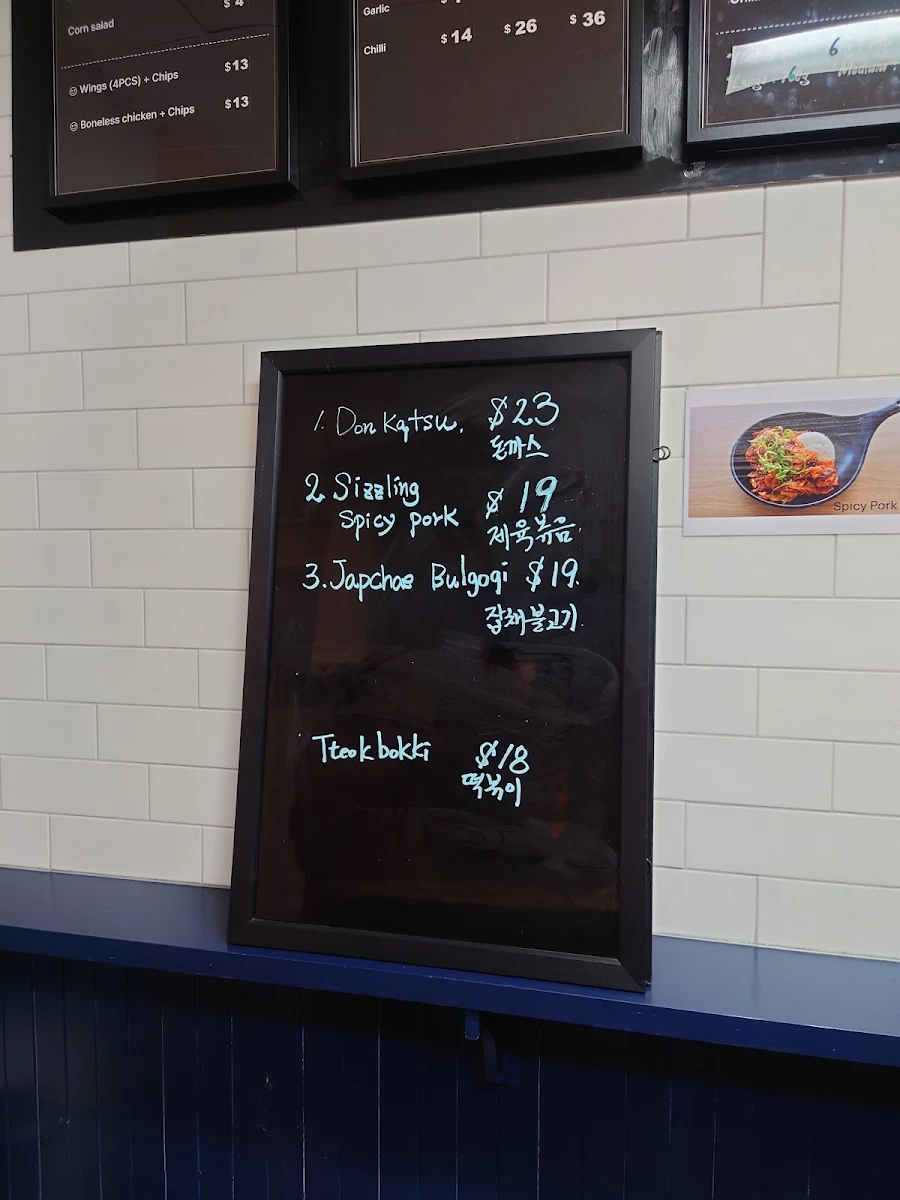 $4
Corn salad
Wings (4PCS) + Chips $13
Boneless chicken + Chips $13
Garlic
Chilli $14 $26 $36
6
1. Don Katsu. $23
돈까스
2. Sizzling
Spicy pork $19
제육볶음
3. Japchae Bulgogi $19.
잡채불고기
Tteokbokki $18
떡볶이
Spicy Pork